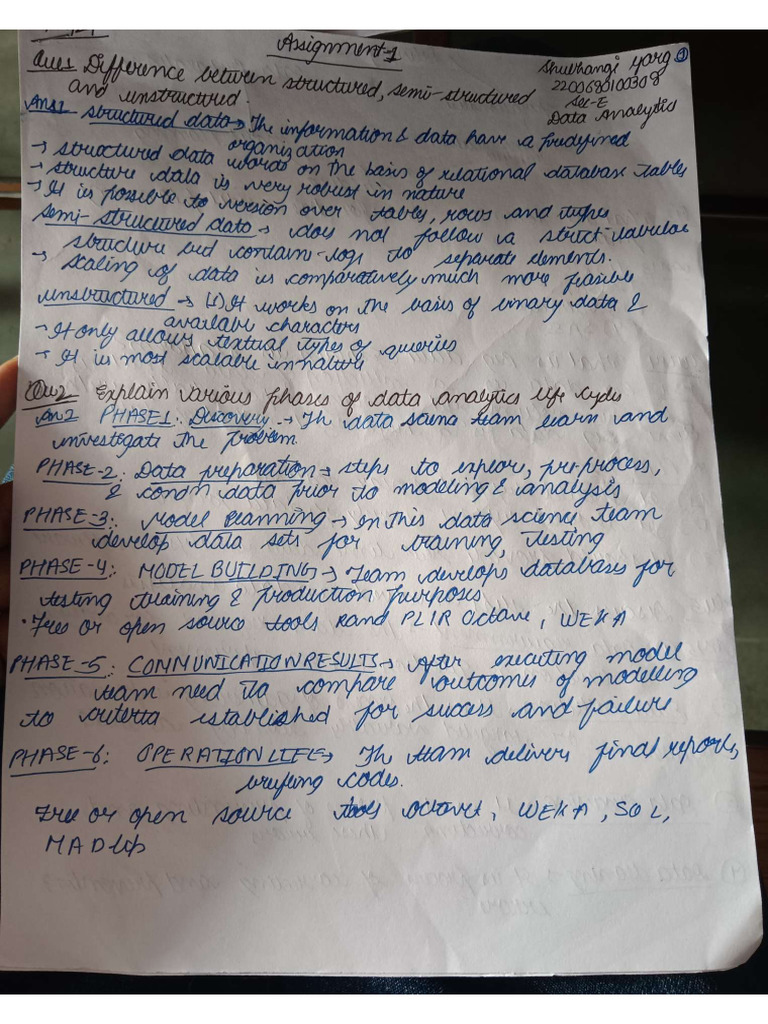 Assignment-1
Shubhangi Garg ①
2200680100308
Sec-E
Data Analysis
Ques1 Difference between structured, semi-structured
and unstructured.
Ans1 Structured data → The information & data have a predefined
organization
→ structured data words on the basis of relational database tables
→ structure data is very robust in nature
→ It is possible to version over tables, rows and types
Semi-structured data → does not follow a strict-tabular
structure but contain-logs to separate elements.
→ Scaling of data is comparatively much more feasible
Unstructured → (i) It works on the basis of binary data &
available characters
→ It only allows textual types of queries
→ It is most scalable in nature
Que2 Explain various phases of data analytics life cycles
An2 PHASE1: Discovery → Th data science team learn and
investigate the problem
PHASE-2: Data preparation → steps to explor, pre-process,
& condn data prior to modeling & analysis
PHASE-3: Model planning → In this data science team
develop data sets for training, testing
PHASE-4: MODEL BUILDING → Team develops databases for
testing training & production purposes
• Free or open source tools Rand PL/R Octave, WEKA
PHASE-5: COMMUNICATION RESULTS → After executing model
team need to compare outcomes of modelling
to criteria established for success and failure
PHASE-6: OPERATIONLIFE → Th team deliver final reports,
briefing codes.
Free or open source tools octave, WEKA, SQL,
MADlip